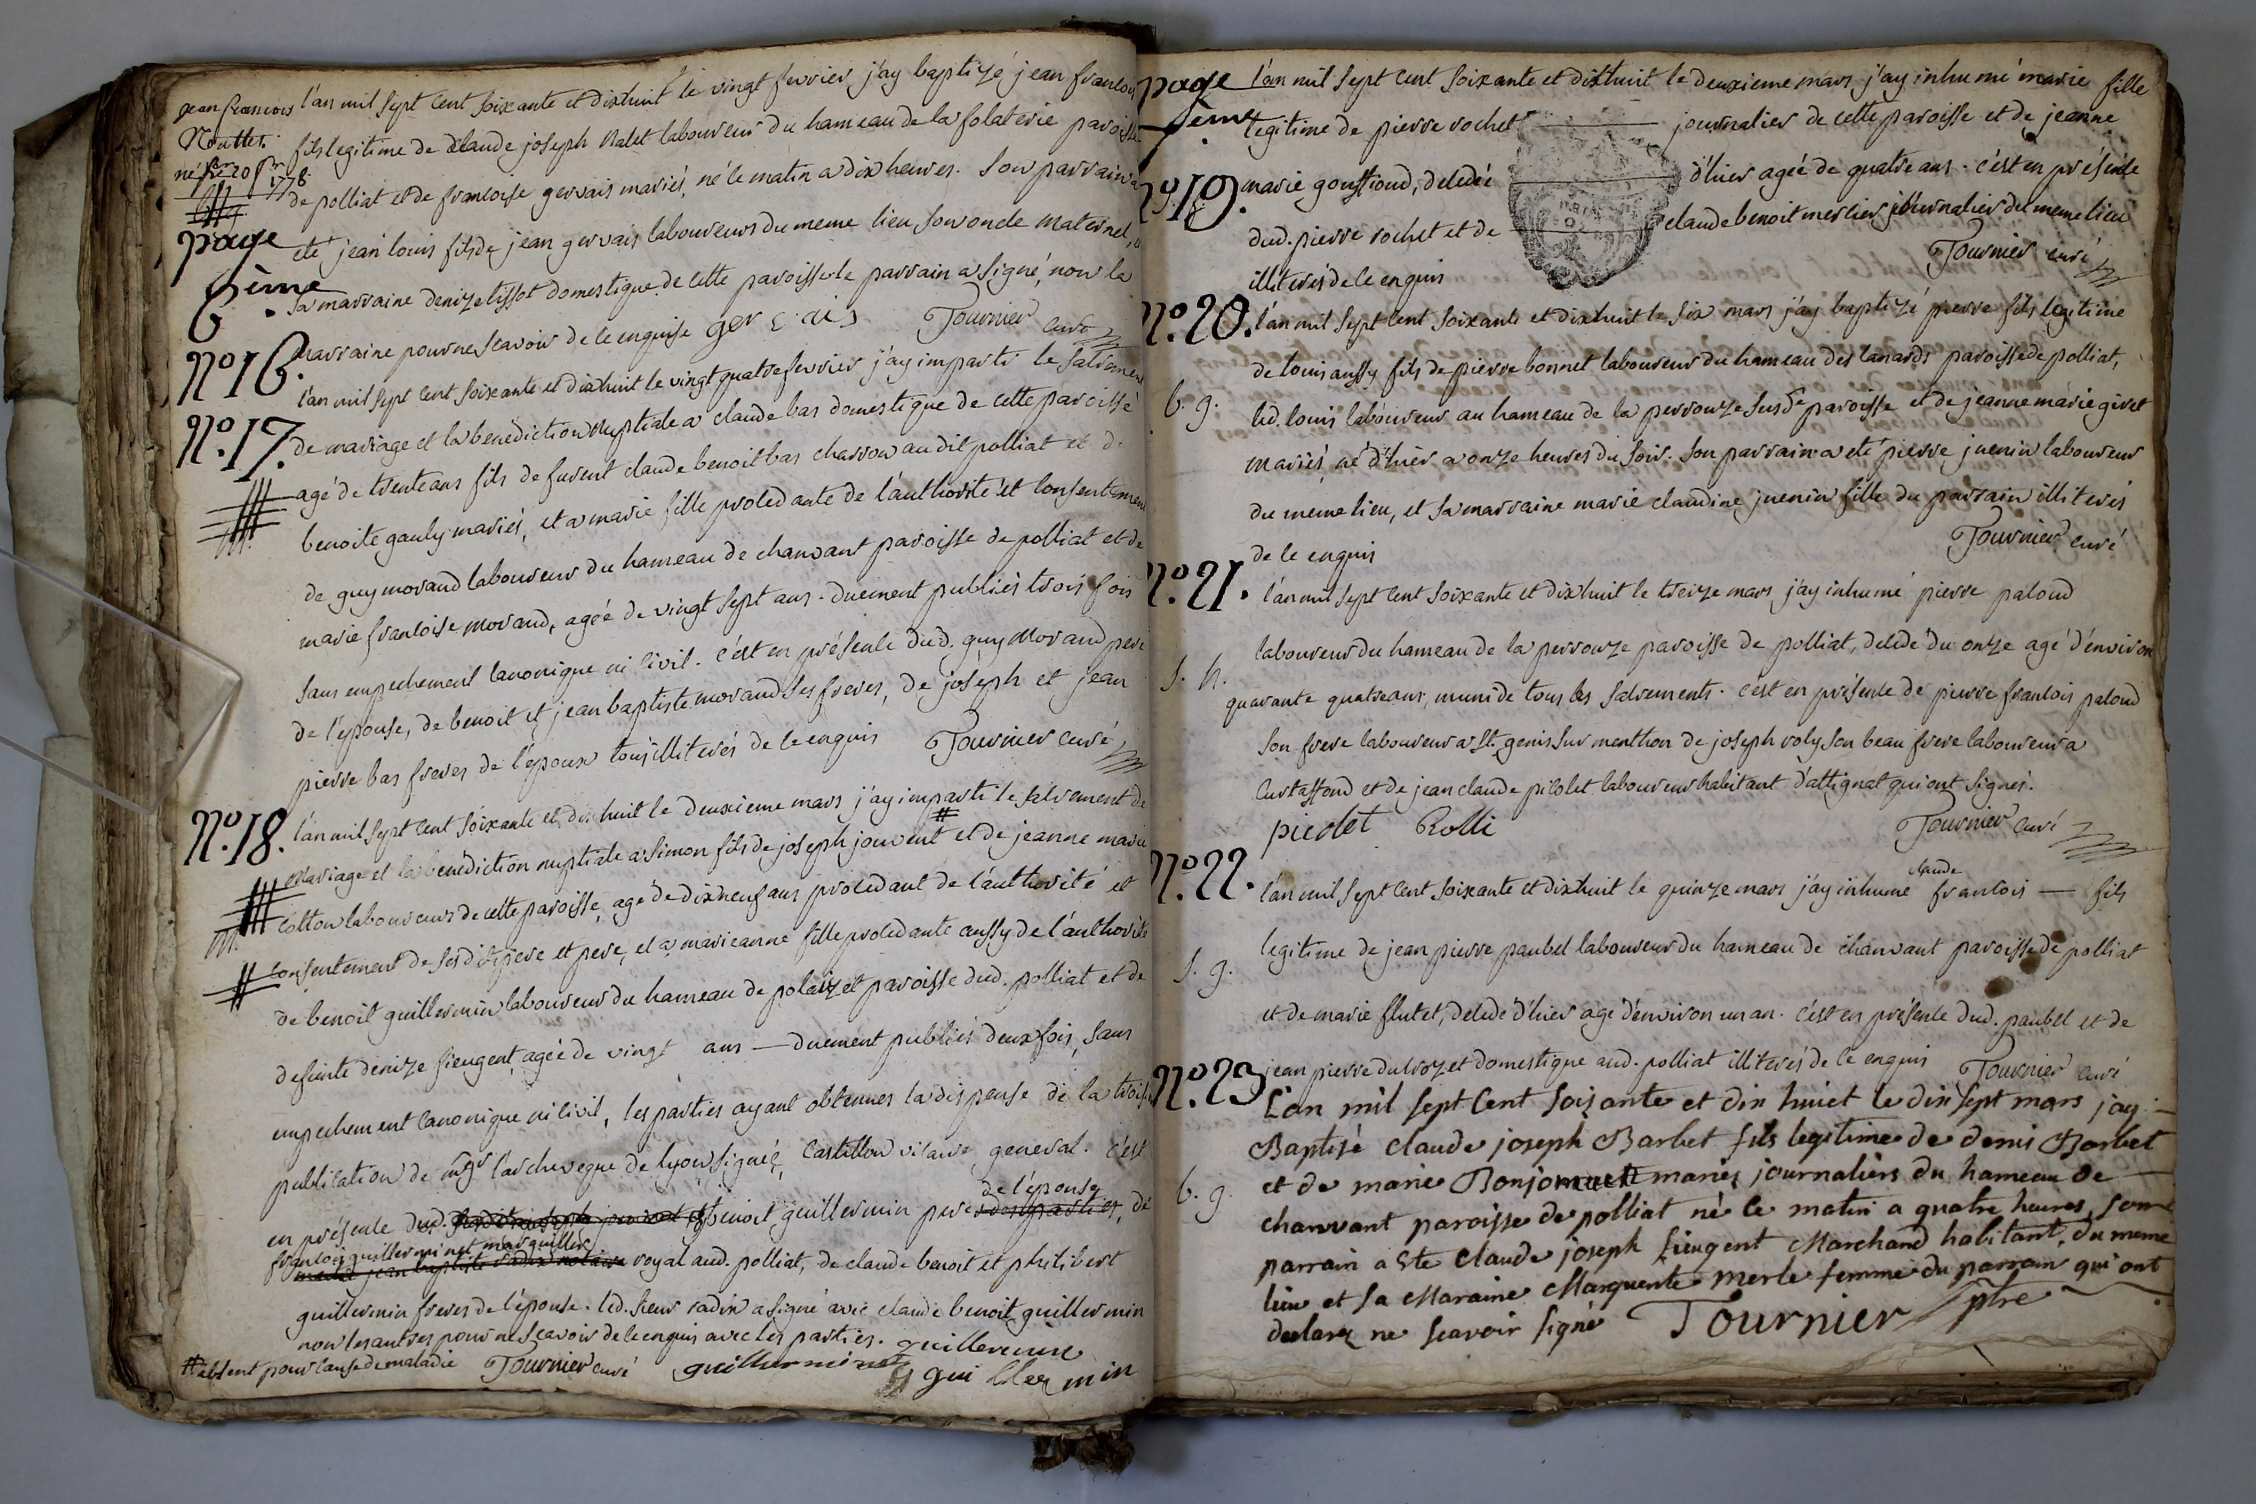 jean francois
Nouttet
né le 20 fer
1778
page
6ème.
n°.16.
l'an mil sept cent soixante et dixhuit le vingt fevrier j'ay baptizé jean francois
fils legitime de claude joseph Natet laboureur du hameau de la folaterie paroisse
de polliat et de francoise gervais mariés, né le matin a dix heures. son parrain a
eté jean louis fils de jean gervais laboureurs du meme lieu son oncle maternel,
sa marraine denize tissot domestique de cette paroisse le parrain a signé, non la
marraine pour ne scavoir de ce enquise gervais Tournier curé
n°.17.
m.
l'an mil sept cent soixante et dixhuit le vingt quatre fevrier j'ay imparti le sacrement
de mariage et la benediction nuptiale a claude bas domestique de cette paroisse
agé de trente ans fils de furent claude benoit bas charron audit polliat et d.
benoite gauly mariés, et a marie fille procedante de l'authorité et consentement
de guy morand laboureur du hameau de chanvant paroisse de polliat et de
marie francoise morand, agée de vingt sept ans. duement publiés trois fois
sans empechement canonique ni civil. c'est en présence dud. guy Morand pere
de l'épouse, de benoit et jean baptiste morand ses freres, de joseph et jean
pierre bas freres de l'époux tous illiterés de ce enquis Tournier curé
n°.18.
m.
l'an mil sept cent soixante et dixhuit le deuxieme mars j'ay imparti le sacrement de
mariage et la benediction nuptiale a simon fils de joseph jouvent # et de jeanne marie
cotton laboureurs de cette paroisse, agé de dixneuf ans procedant de l'authorité et
consentement de sesdits pere et pere, et a marieanne fille procedante aussy de l'authorité
de benoit guillermin laboureur du hameau de polaizet paroisse dud. polliat et de
defunte denize fieugent, agée de vingt ans — duement publiés deux fois, sans
empechement canonique ni civil, les parties ayant obtenues la dispense de la trois
publication de mgr l'archeveque de lyon signée, Castillon vicaire general. c'est
en présence dud. benoit guillermin pere de l'épouse, de
francois guillerminet marguillier
royal aud. polliat, de claude benoit et philibert
guillermin freres de l'épouse. led. sieur radix a signé avec claude benoit guillermin
non les autres pour ne scavoir de ce enquis avec les parties. guillermin
# absent pour cause de maladie Tournier curé guillerminet guillermin
page
7ème
n°.19.
l'an mil sept cent soixante et dixhuit le deuxieme mars j'ay inhumé marie fille
legitime de pierre rochet journalier de cette paroisse et de jeanne
marie gouffioud, decedée d'hier agée de quatre ans. c'est en présence
dud. pierre rochet et de claude benoit merlier journalier du meme lieu
illiterés de ce enquis Tournier curé
n°.20.
b. g.
l'an mil sept cent soixante et dixhuit le six mars j'ay baptizé pierre fils legitime
de louis aussy fils de pierre bonnet laboureur du hameau des lanards paroisse de polliat,
led. louis laboureur au hameau de la perrouze susde paroisse et de jeanne marie givet
mariés, né d'hier a onze heures du soir. son parrain a eté pierre juenin laboureur
du meme lieu, et sa marraine marie claudine juenin fille du parrain illiterés
de ce enquis Tournier curé
n°.21.
s. h.
l'an mil sept cent soixante et dixhuit le treize mars j'ay inhumé pierre paloud
laboureur du hameau de la perrouze paroisse de polliat, decedé du onze agé d'environ
quarante quatre ans, muni de tous les sacrements. c'est en présence de pierre francois paloud
son frere laboureur a St. genis sur menthon de joseph roly son beau frere laboureur a
Curtaffond et de jean claude picolet laboureur habitant d'attignat qui ont signés.
picolet Rolli Tournier curé
n°.22.
s. g.
claude
l'an mil sept cent soixante et dixhuit le quinze mars j'ay inhumé francois — fils
legitime de jean pierre paubel laboureur du hameau de chanvant paroisse de polliat
et de marie flutet, decedé d'hier agé d'environ un an. c'est en présence dud. paubel et de
jean pierre ducrozet domestique aud. polliat illiterés de ce enquis Tournier curé
n°.23
b. g.
L'an mil sept cent soizante et dix huiet le dix sept mars j'ay
Baptisé claude joseph Barbet fils legitime de denis Barbet
et de marie Bonjomuet mariés journaliers du hameau de
chanvant paroisse de polliat né le matin a quatre heures, son
parrain a Ete claude joseph fieugent Marchand habitant, du meme
lieu et sa Maraine Marguerite merle femme du parrain qui ont
declarez ne scavoir signé Tournier ptre